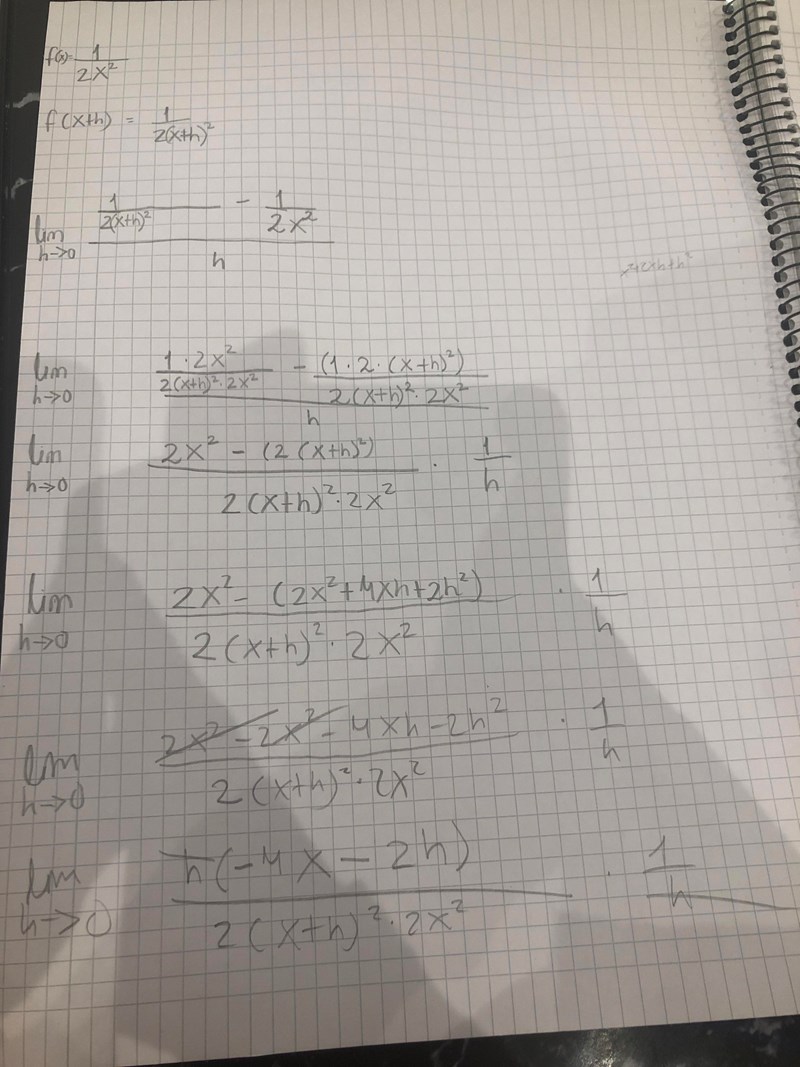 f(x)= 1/2x²
f(x+h) = 1/2(x+h)²
lim h→0 (1/2(x+h)² - 1/2x²)/h
lim h→0 (1·2x²/2(x+h)²·2x² - (1·2·(x+h)²)/2(x+h)²·2x²)/h
lim h→0 (2x² - (2(x+h)²))/(2(x+h)²·2x²) · 1/h
lim h→0 (2x² - (2x²+4xh+2h²))/(2(x+h)²·2x²) · 1/h
lim h→0 (2x² - 2x² - 4xh - 2h²)/(2(x+h)²·2x²) · 1/h
lim h→0 h(-4x - 2h)/(2(x+h)²·2x²) · 1/h